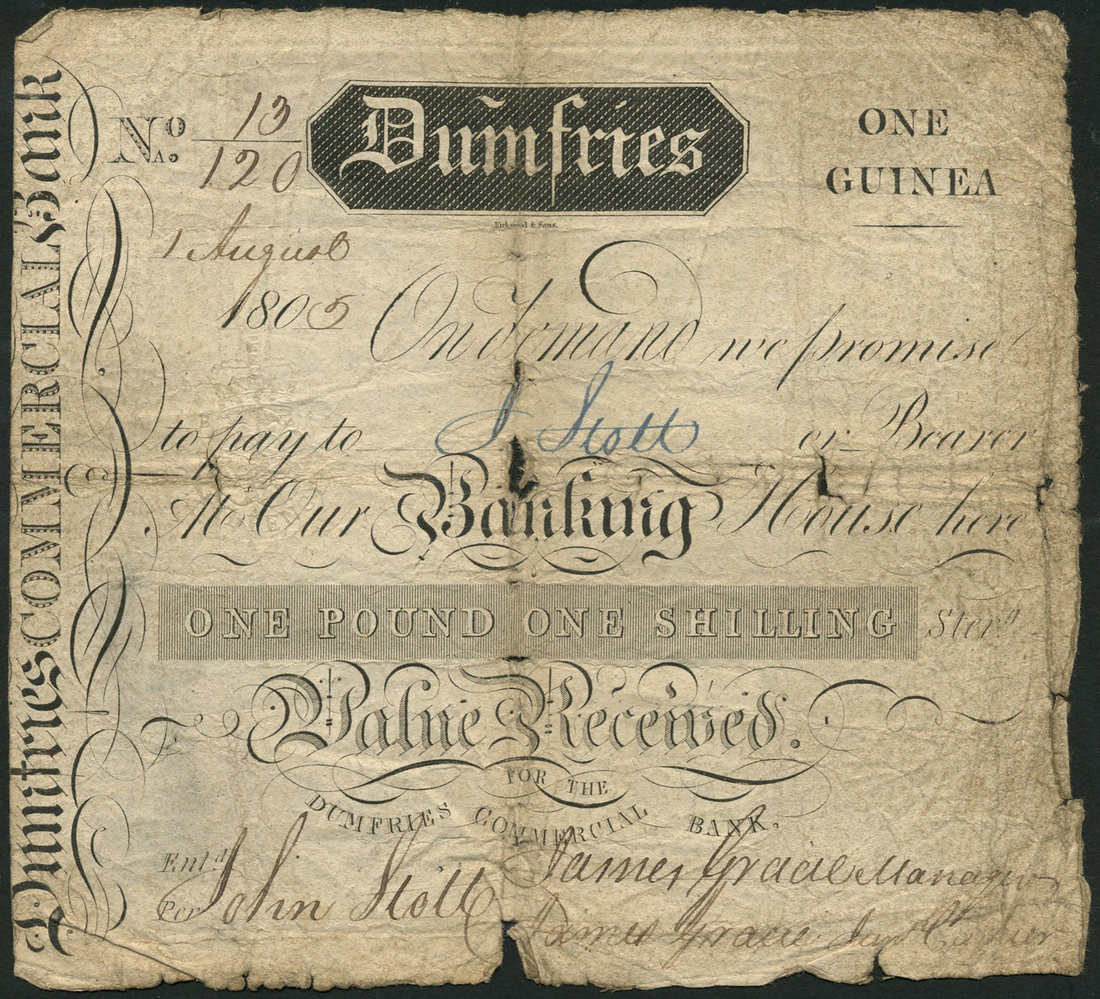 Dumfries COMMERCIAL Bank
No. 13/120
Dumfries
ONE
GUINEA
Kirkwood & Sons.
1 August
1805
On Demand we promise
to pay to J Stott or Bearer
At Our Banking House here
ONE POUND ONE SHILLING Sterg
Value Received.
FOR THE
DUMFRIES COMMERCIAL BANK,
Entd James Gracie Manager
Per John Stott
James Gracie Junr Cashier